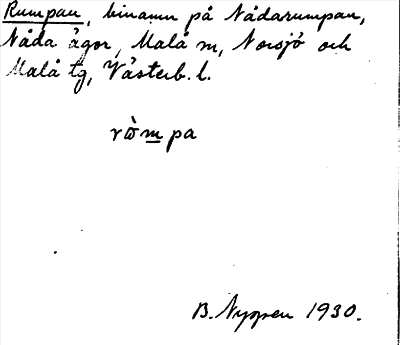 Rumpan, binamn på Nådarumpan,
Nåda ägor, Malå m, Norsjö och
Malå tg, Västerb. l.
rὼm̲pa
B. Nyman 1930.